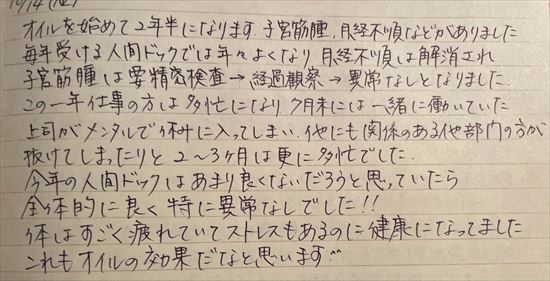 10/14 (金)
オイルを始めて2年半になります 子宮筋腫,月経不順などがありました
毎年受ける人間ドックでは年々よくなり 月経不順は解消され
子宮筋腫は要精密検査→経過観察→異常なしとなりました.
この一年仕事の方は多忙になり 7月末には一緒に働いていた
上司がメンタルで休みに入ってしまい.他にも関係のある他部門の方が
抜けてしまったりと 2〜3ヶ月は更に多忙でした.
今年の人間ドックはあまり良くないだろうと思っていたら
全体的に良く 特に異常なしでした!!
体はすごく疲れていてストレスもあるのに健康になってました
これもオイルの効果だなと思います